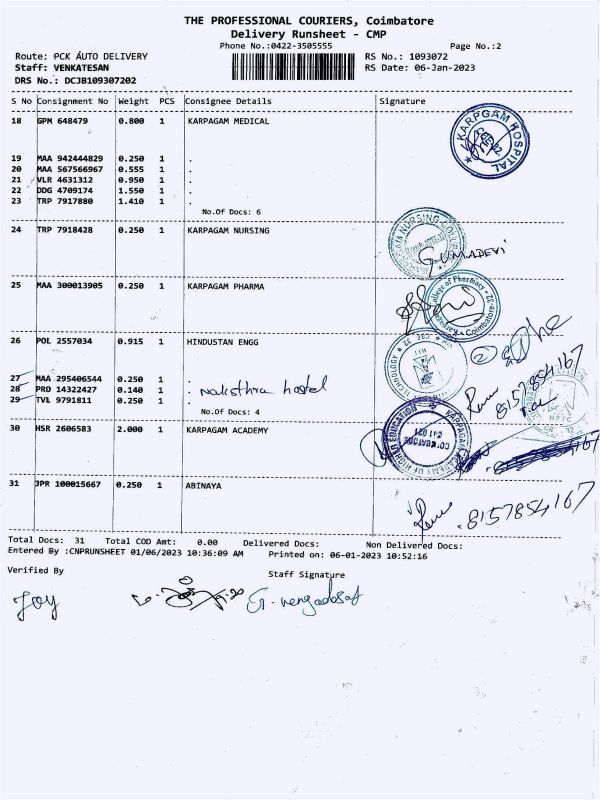 THE PROFESSIONAL COURIERS, Coimbatore
Delivery Runsheet - CMP
Phone No.:0422-3505555 Page No.:2
Route: PCK AUTO DELIVERY RS No.: 1093072
Staff: VENKATESAN RS Date: 06-Jan-2023
DRS No.: DCJB109307202
S No Consignment No Weight PCS Consignee Details Signature
18 GPM 648479 0.800 1 KARPAGAM MEDICAL
KARPGAM HOSPITAL
19 MAA 942444829 0.250 1 .
20 MAA 567566967 0.555 1 .
21 VLR 4631312 0.950 1 .
22 DDG 4709174 1.550 1 .
23 TRP 7917880 1.410 1 .
No.Of Docs: 6
24 TRP 7918428 0.250 1 KARPAGAM NURSING
GUMADEVI
25 MAA 300013905 0.250 1 KARPAGAM PHARMA
College of Pharmacy Coimbatore-32
26 POL 2557034 0.915 1 HINDUSTAN ENGG
27 MAA 295406544 0.250 1 .
28 PRO 14322427 0.140 1 . naksthra hostel
29 TVL 9791811 0.250 1 .
8157854167
No.Of Docs: 4
30 HSR 2606583 2.000 1 KARPAGAM ACADEMY
KARPAGAM ACADEMY OF HIGHER EDUCATION COIMBATORE 641 021
31 JPR 100015667 0.250 1 ABINAYA
8157854167
Total Docs: 31 Total COD Amt: 0.00 Delivered Docs: Non Delivered Docs:
Entered By :CNPRUNSHEET 01/06/2023 10:36:09 AM Printed on: 06-01-2023 10:52:16
Verified By Staff Signature
Joy